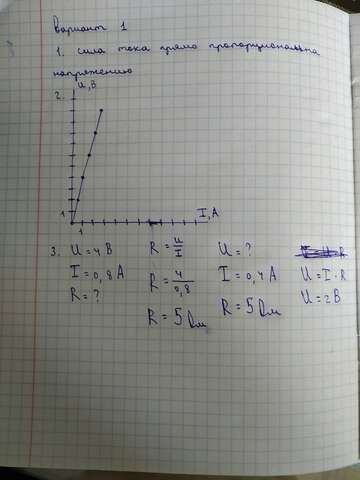 Вариант 1
1. сила тока прямо пропорциональна
напряжению
2. U, В
1
1
I, А
3. U = 4 В R = U/I U = ?
I = 0,8 А R = 4/0,8 I = 0,4 А U = I · R
R = ? R = 5 Ом R = 5 Ом U = 2 В